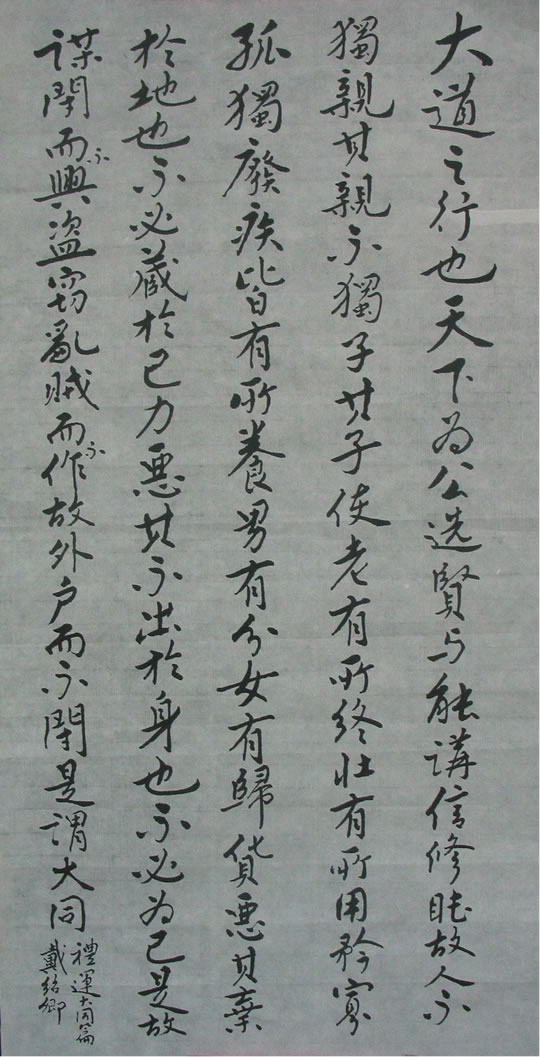 大道之行也天下为公选賢与能講信修睦故人不
獨親其親不獨子其子使老有所終壯有所用矜寡
孤獨廢疾皆有所養男有分女有歸貨惡其棄
於地也不必藏於己力惡其不出於身也不必为己是故
謀閉而不興盜竊亂賊而不作故外户而不閉是謂大同
禮運大同篇
戴紹卿